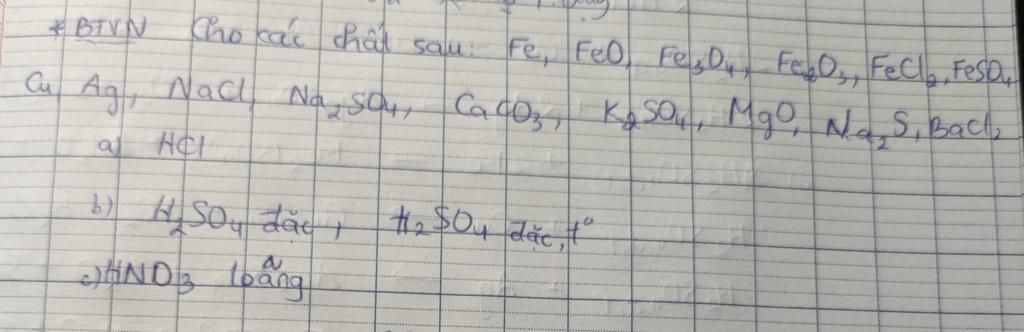 * BTVN Cho các chất sau: Fe, FeO, Fe3O4, Fe2O3, FeCl2, FeSO4
Cu, Ag, NaCl, Na2SO4, CaCO3, K2SO4, MgO, Na2S, BaCl2
a) HCl
b) H2SO4 đặc, H2SO4 đặc, t°
c) HNO3 loãng